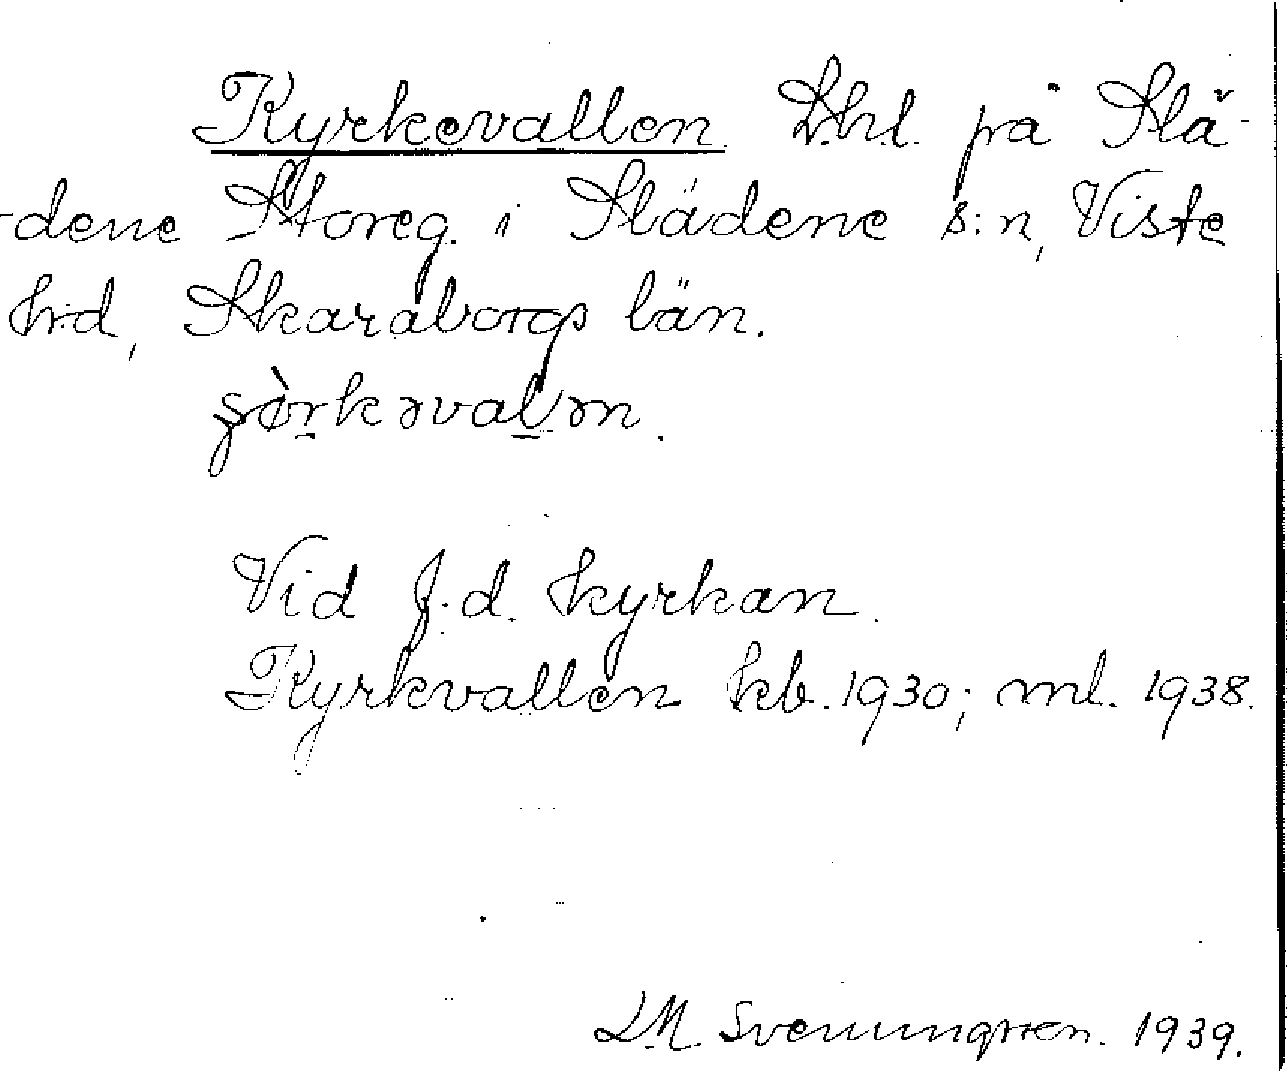 Kyrkevallen. Lhl. på Slä-
-dene Storeg. i Slädene s:n, Viste
hrd, Skaraborgs län.
Vid f.d. kyrkan.
Kyrkvallen kb. 1930; ml. 1938.
L.M. Svenungsson. 1939.